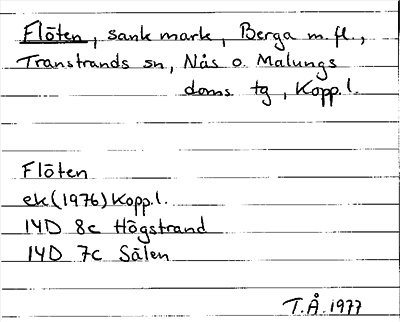 Flöten, sank mark, Berga m. fl.,
Transtrands sn, Nås o. Malungs
doms tg, Kopp. l.
Flöten
ek(1976) Kopp. l.
14D 8c Högstrand
14D 7c Sälen
T.Å. 1977